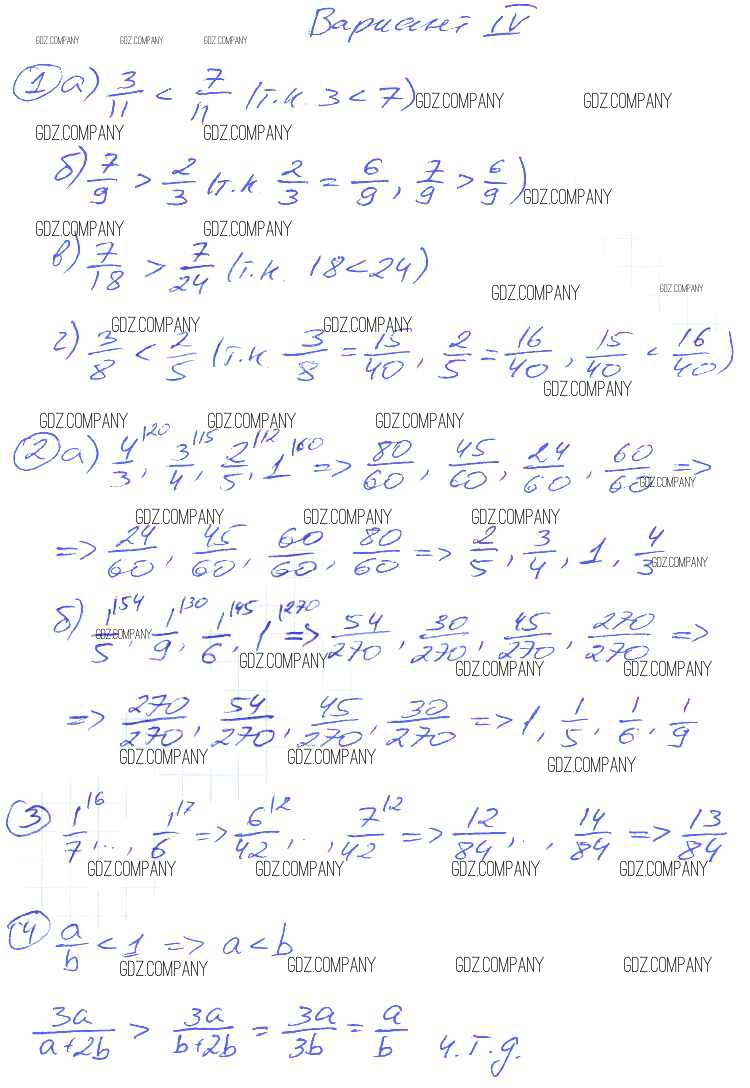 Вариант IV
GDZ.COMPANY GDZ.COMPANY GDZ.COMPANY
① а) 3/11 < 7/11 (т.к. 3 < 7) GDZ.COMPANY GDZ.COMPANY
GDZ.COMPANY GDZ.COMPANY
б) 7/9 > 2/3 (т.к. 2/3 = 6/9, 7/9 > 6/9) GDZ.COMPANY
GDZ.COMPANY GDZ.COMPANY
в) 7/18 > 7/24 (т.к. 18 < 24)
GDZ.COMPANY GDZ.COMPANY
GDZ.COMPANY GDZ.COMPANY
г) 3/8 < 2/5 (т.к. 3/8 = 15/40, 2/5 = 16/40, 15/40 < 16/40)
GDZ.COMPANY
GDZ.COMPANY GDZ.COMPANY GDZ.COMPANY
② а) 4/3 |20, 3/4 |15, 2/5 |12, 1 |60 => 80/60, 45/60, 24/60, 60/60 =>
GDZ.COMPANY
GDZ.COMPANY GDZ.COMPANY GDZ.COMPANY
=> 24/60, 45/60, 60/60, 80/60 => 2/5, 3/4, 1, 4/3
GDZ.COMPANY
б) 1/5 |54, 1/9 |30, 1/6 |45, 1 |270 => 54/270, 30/270, 45/270, 270/270 =>
GDZ.COMPANY
GDZ.COMPANY GDZ.COMPANY GDZ.COMPANY
=> 270/270, 54/270, 45/270, 30/270 => 1, 1/5, 1/6, 1/9
GDZ.COMPANY GDZ.COMPANY GDZ.COMPANY
③ 1/7 |6, .., 1/6 |7 => 6/42 |2, .., 7/42 |2 => 12/84, .., 14/84 => 13/84
GDZ.COMPANY GDZ.COMPANY GDZ.COMPANY GDZ.COMPANY
④ a/b < 1 => a < b
GDZ.COMPANY GDZ.COMPANY GDZ.COMPANY GDZ.COMPANY
3a/(a+2b) > 3a/(b+2b) = 3a/3b = a/b ч.т.д.